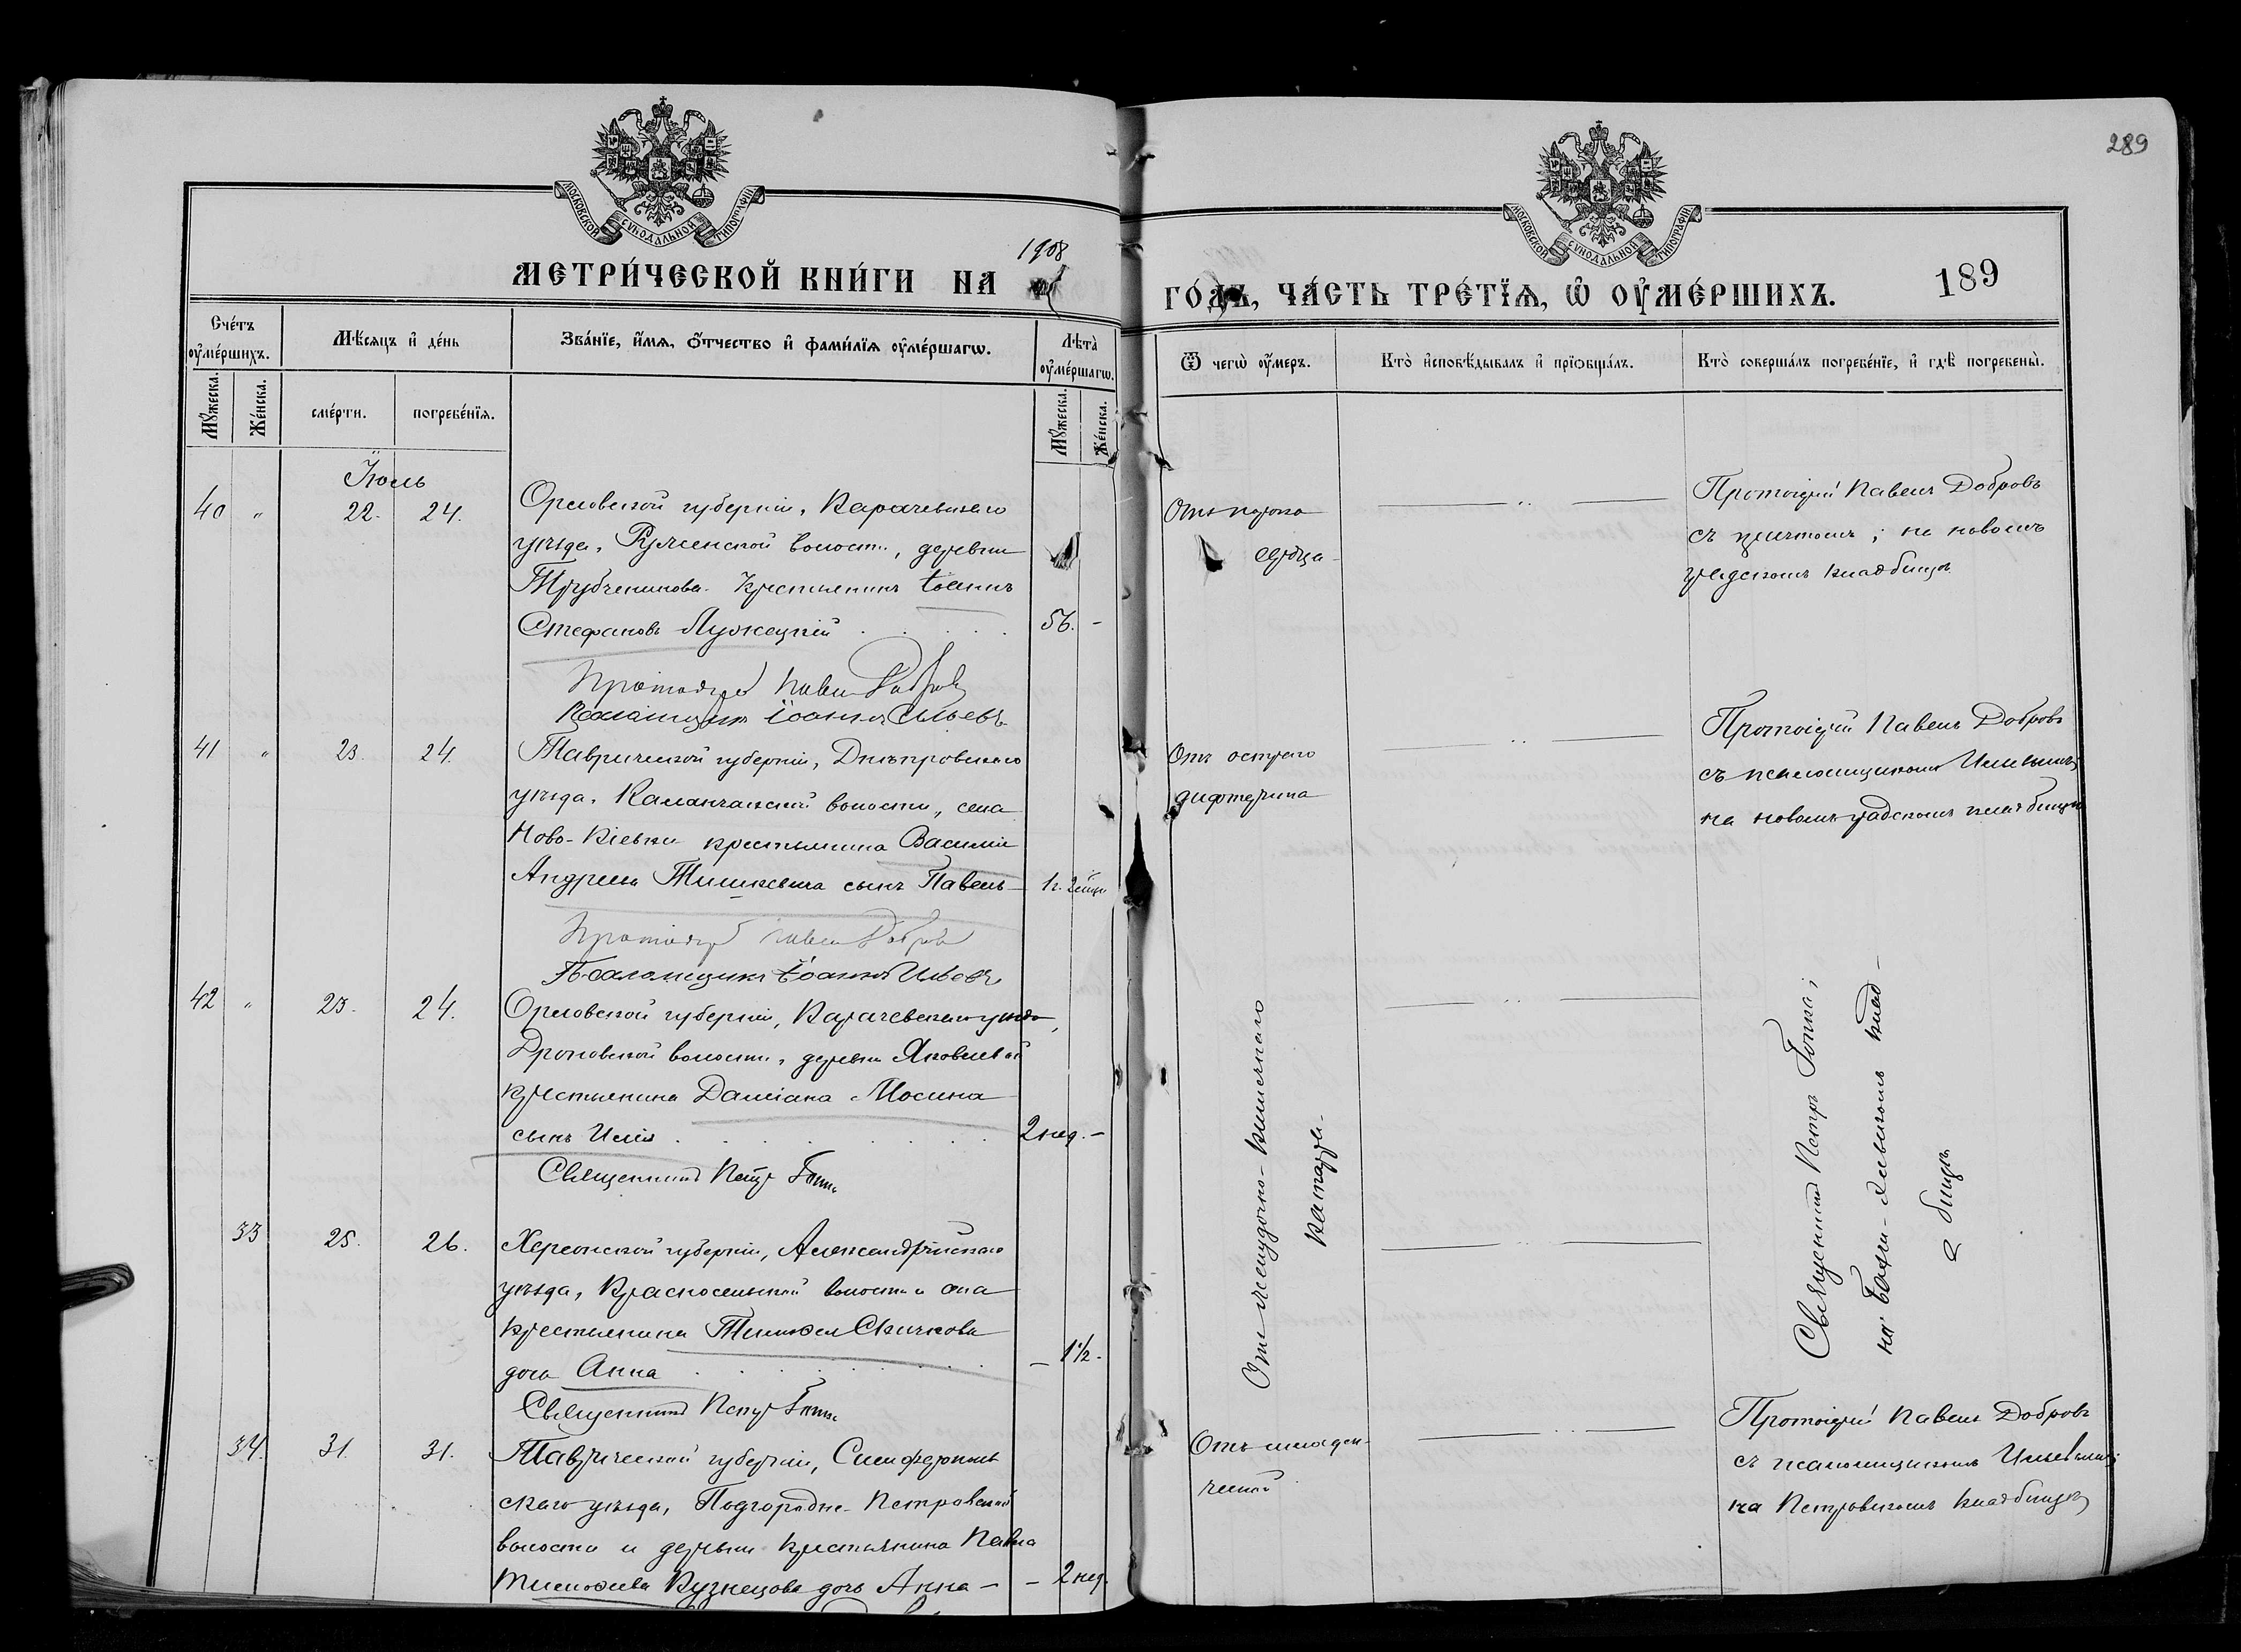 289
МОСКОВСКОЙ СѴНОДАЛЬНОЙ ТИПОГРАФІИ
МОСКОВСКОЙ СѴНОДАЛЬНОЙ ТИПОГРАФІИ
МЕТРИ́ЧЕСКОЙ КНИ́ГИ НА 1908
ГО́ДЪ, ЧА́СТЬ ТРЕ́ТЇѦ, Ѡ҆ ОУ҆МЕ́РШИХЪ.
189
Сче́тъ оу҆ме́ршихъ.
Мѣ́сяцъ и҆ де́нь
Зва́нїе, и҆́мѧ, ѻ҆́тчество и҆ фами́лїѧ оу҆ме́ршагѡ.
Лѣта̀ оу҆ме́ршагѡ.
Ѿ чегѡ̀ оу҆́меръ.
Кто̀ и҆сповѣ́дывалъ и҆ прїѻбща́лъ.
Кто̀ соверша́лъ погребе́нїе, и҆ гдѣ̀ погребены̀.
Мꙋ́жеска.
Же́нска.
сме́рти.
погребе́нїѧ.
Мꙋ́жеска.
Же́нска.
Іюль
40 " 22. 24. Орловской губерніи, Карачевскаго
уѣзда, волости, деревни
крестьянинъ Іоаннъ
Стефановъ Лужецкій 56. -
Отъ порока
сердца
Протоіерей Павелъ Добровъ
съ причтомъ; на новомъ
градскомъ кладбищѣ
Протоіерей Павелъ Добровъ
Псаломщикъ Іоаннъ Ильевъ
41 " 23. 24. Таврической губерніи, Днѣпровскаго
уѣзда, Каланчакской волости, села
Ново-Кіевки крестьянина Василія
Андреева сынъ Павелъ 1 г. 2 мѣц.
Отъ остраго
дифтерита
Протоіерей Павелъ Добровъ
съ псаломщикомъ Ильевымъ;
на новомъ градскомъ кладбищѣ
Протоіерей Павелъ Добровъ
Псаломщикъ Іоаннъ Ильевъ
42 " 23. 24. Орловской губерніи, Карачевскаго уѣзда,
Дроновской волости, деревни Яковлевой
крестьянина Даміана Мосина
сынъ Илія 2 нед. -
Священникъ Петръ
33 25. 26. Херсонской губерніи, Александрійскаго
уѣзда, Красносельской волости и села
крестьянина Тимоѳея Скичкова
дочь Анна - 1½ -
Священникъ Петръ
Отъ желудочно-кишечнаго
катарра.
Священникъ Петръ
на Бахчи-Элинскомъ клад-
бищѣ
34. 31. 31. Таврической губерніи, Симферополь
скаго уѣзда, Подгородне-Петровской
волости и деревни крестьянина Павла
Тимоѳеева Кузнецова дочь Анна - - 2 нед.
Отъ младен-
ческой
Протоіерей Павелъ Добровъ
съ псаломщикомъ Ильевымъ;
на Петровскомъ кладбищѣ